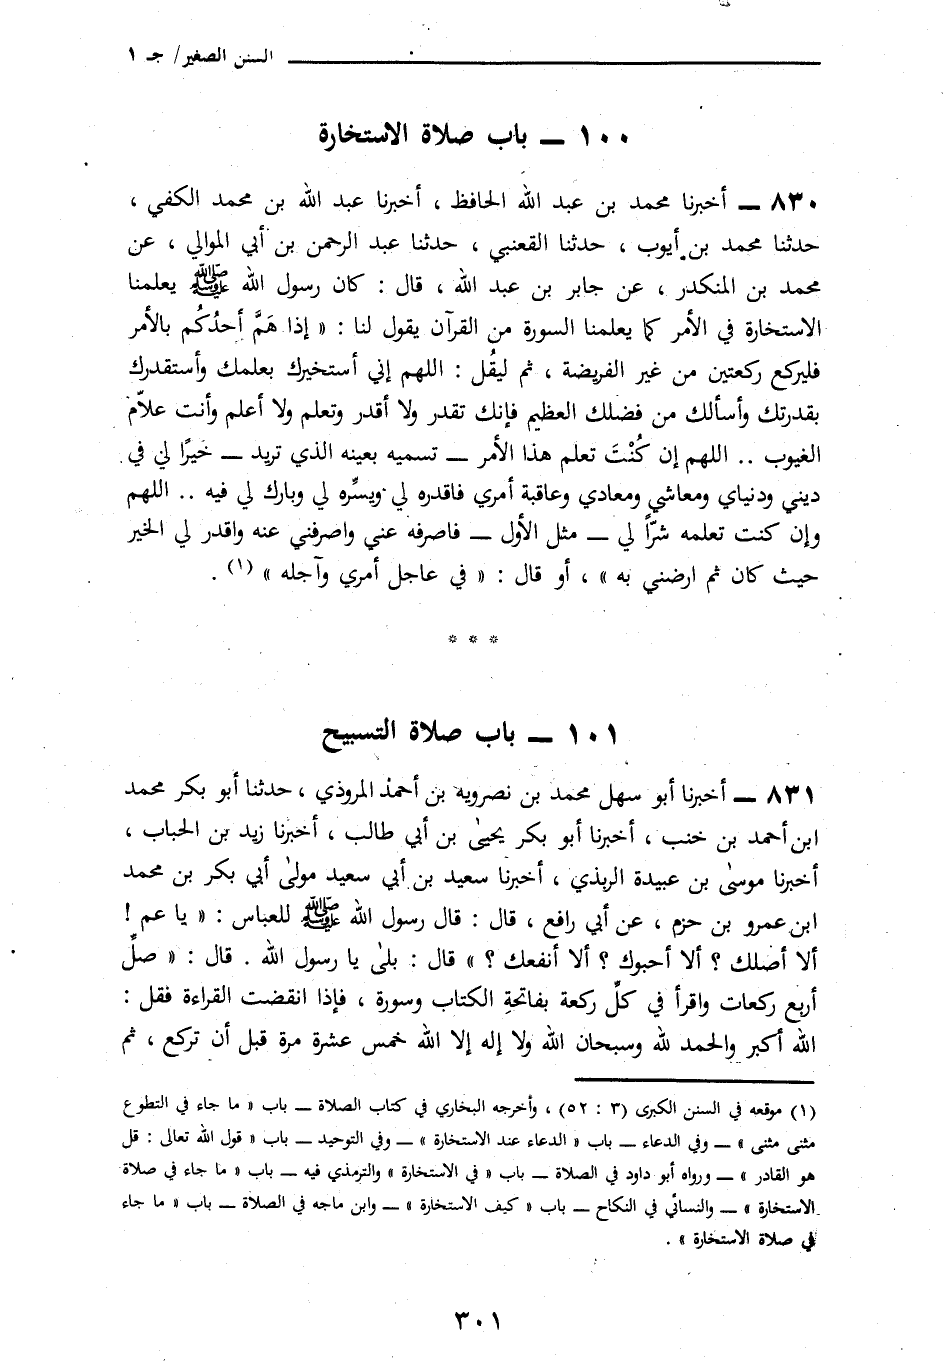 السنن الصغير / جـ ١
١٠٠ ــ باب صلاة الاستخارة
٨٣٠ ــ أخبرنا محمد بن عبد الله الحافظ ، أخبرنا عبد الله بن محمد الكفي ،
حدثنا محمد بن أيوب ، حدثنا القعنبي ، حدثنا عبد الرحمن بن أبي الموالي ، عن
محمد بن المنكدر ، عن جابر بن عبد الله ، قال : كان رسول الله ﷺ يعلمنا
الاستخارة في الأمر كما يعلمنا السورة من القرآن يقول لنا : « إذا هَمَّ أحدُكُم بالأمر
فليركع ركعتين من غير الفريضة ، ثم ليقُل : اللهم إني أستخيرك بعلمك وأستقدرك
بقدرتك وأسألك من فضلك العظيم فإنك تقدر ولا أقدر وتعلم ولا أعلم وأنت علاّم
الغيوب .. اللهم إن كُنْتَ تعلم هذا الأمر ــ تسميه بعينه الذي تريد ــ خيرًا لي في
ديني ودنياي ومعاشي ومعادي وعاقبة أمري فاقدره لي ويسِّره لي وبارك لي فيه .. اللهم
وإن كنت تعلمه شرًّا لي ــ مثل الأول ــ فاصرفه عني واصرفني عنه واقدر لي الخير
حيث كان ثم ارضني به » ، أو قال : « في عاجل أمري وآجله » (١) .
* * *
١٠١ ــ باب صلاة التسبيح
٨٣١ ــ أخبرنا أبو سهل محمد بن نصرويه بن أحمد المروذي ، حدثنا أبو بكر محمد
ابن أحمد بن خنب ، أخبرنا أبو بكر يحيىٰ بن أبي طالب ، أخبرنا زيد بن الحباب ،
أخبرنا موسىٰ بن عبيدة الربذي ، أخبرنا سعيد بن أبي سعيد مولىٰ أبي بكر بن محمد
ابن عمرو بن حزم ، عن أبي رافع ، قال : قال رسول الله ﷺ للعباس : « يا عم !
ألا أصلك ؟ ألا أحبوك ؟ ألا أنفعك ؟ » قال : بلىٰ يا رسول الله . قال : « صلِّ
أربع ركعات واقرأ في كلِّ ركعة بفاتحةِ الكتاب وسورة ، فإذا انقضت القراءة فقل :
الله أكبر والحمد لله وسبحان الله ولا إله إلا الله خمس عشرة مرة قبل أن تركع ، ثم
(١) موقعه في السنن الكبرى (٣ : ٥٢) ، وأخرجه البخاري في كتاب الصلاة ــ باب « ما جاء في التطوع
مثنى مثنى » ــ وفي الدعاء ــ باب « الدعاء عند الاستخارة » ــ وفي التوحيد ــ باب « قول الله تعالى : قل
هو القادر » ــ ورواه أبو داود في الصلاة ــ باب « في الاستخارة » والترمذي فيه ــ باب « ما جاء في صلاة
الاستخارة » ــ والنسائي في النكاح ــ باب « كيف الاستخارة » ــ وابن ماجه في الصلاة ــ باب « ما جاء
في صلاة الاستخارة » .
٣٠١